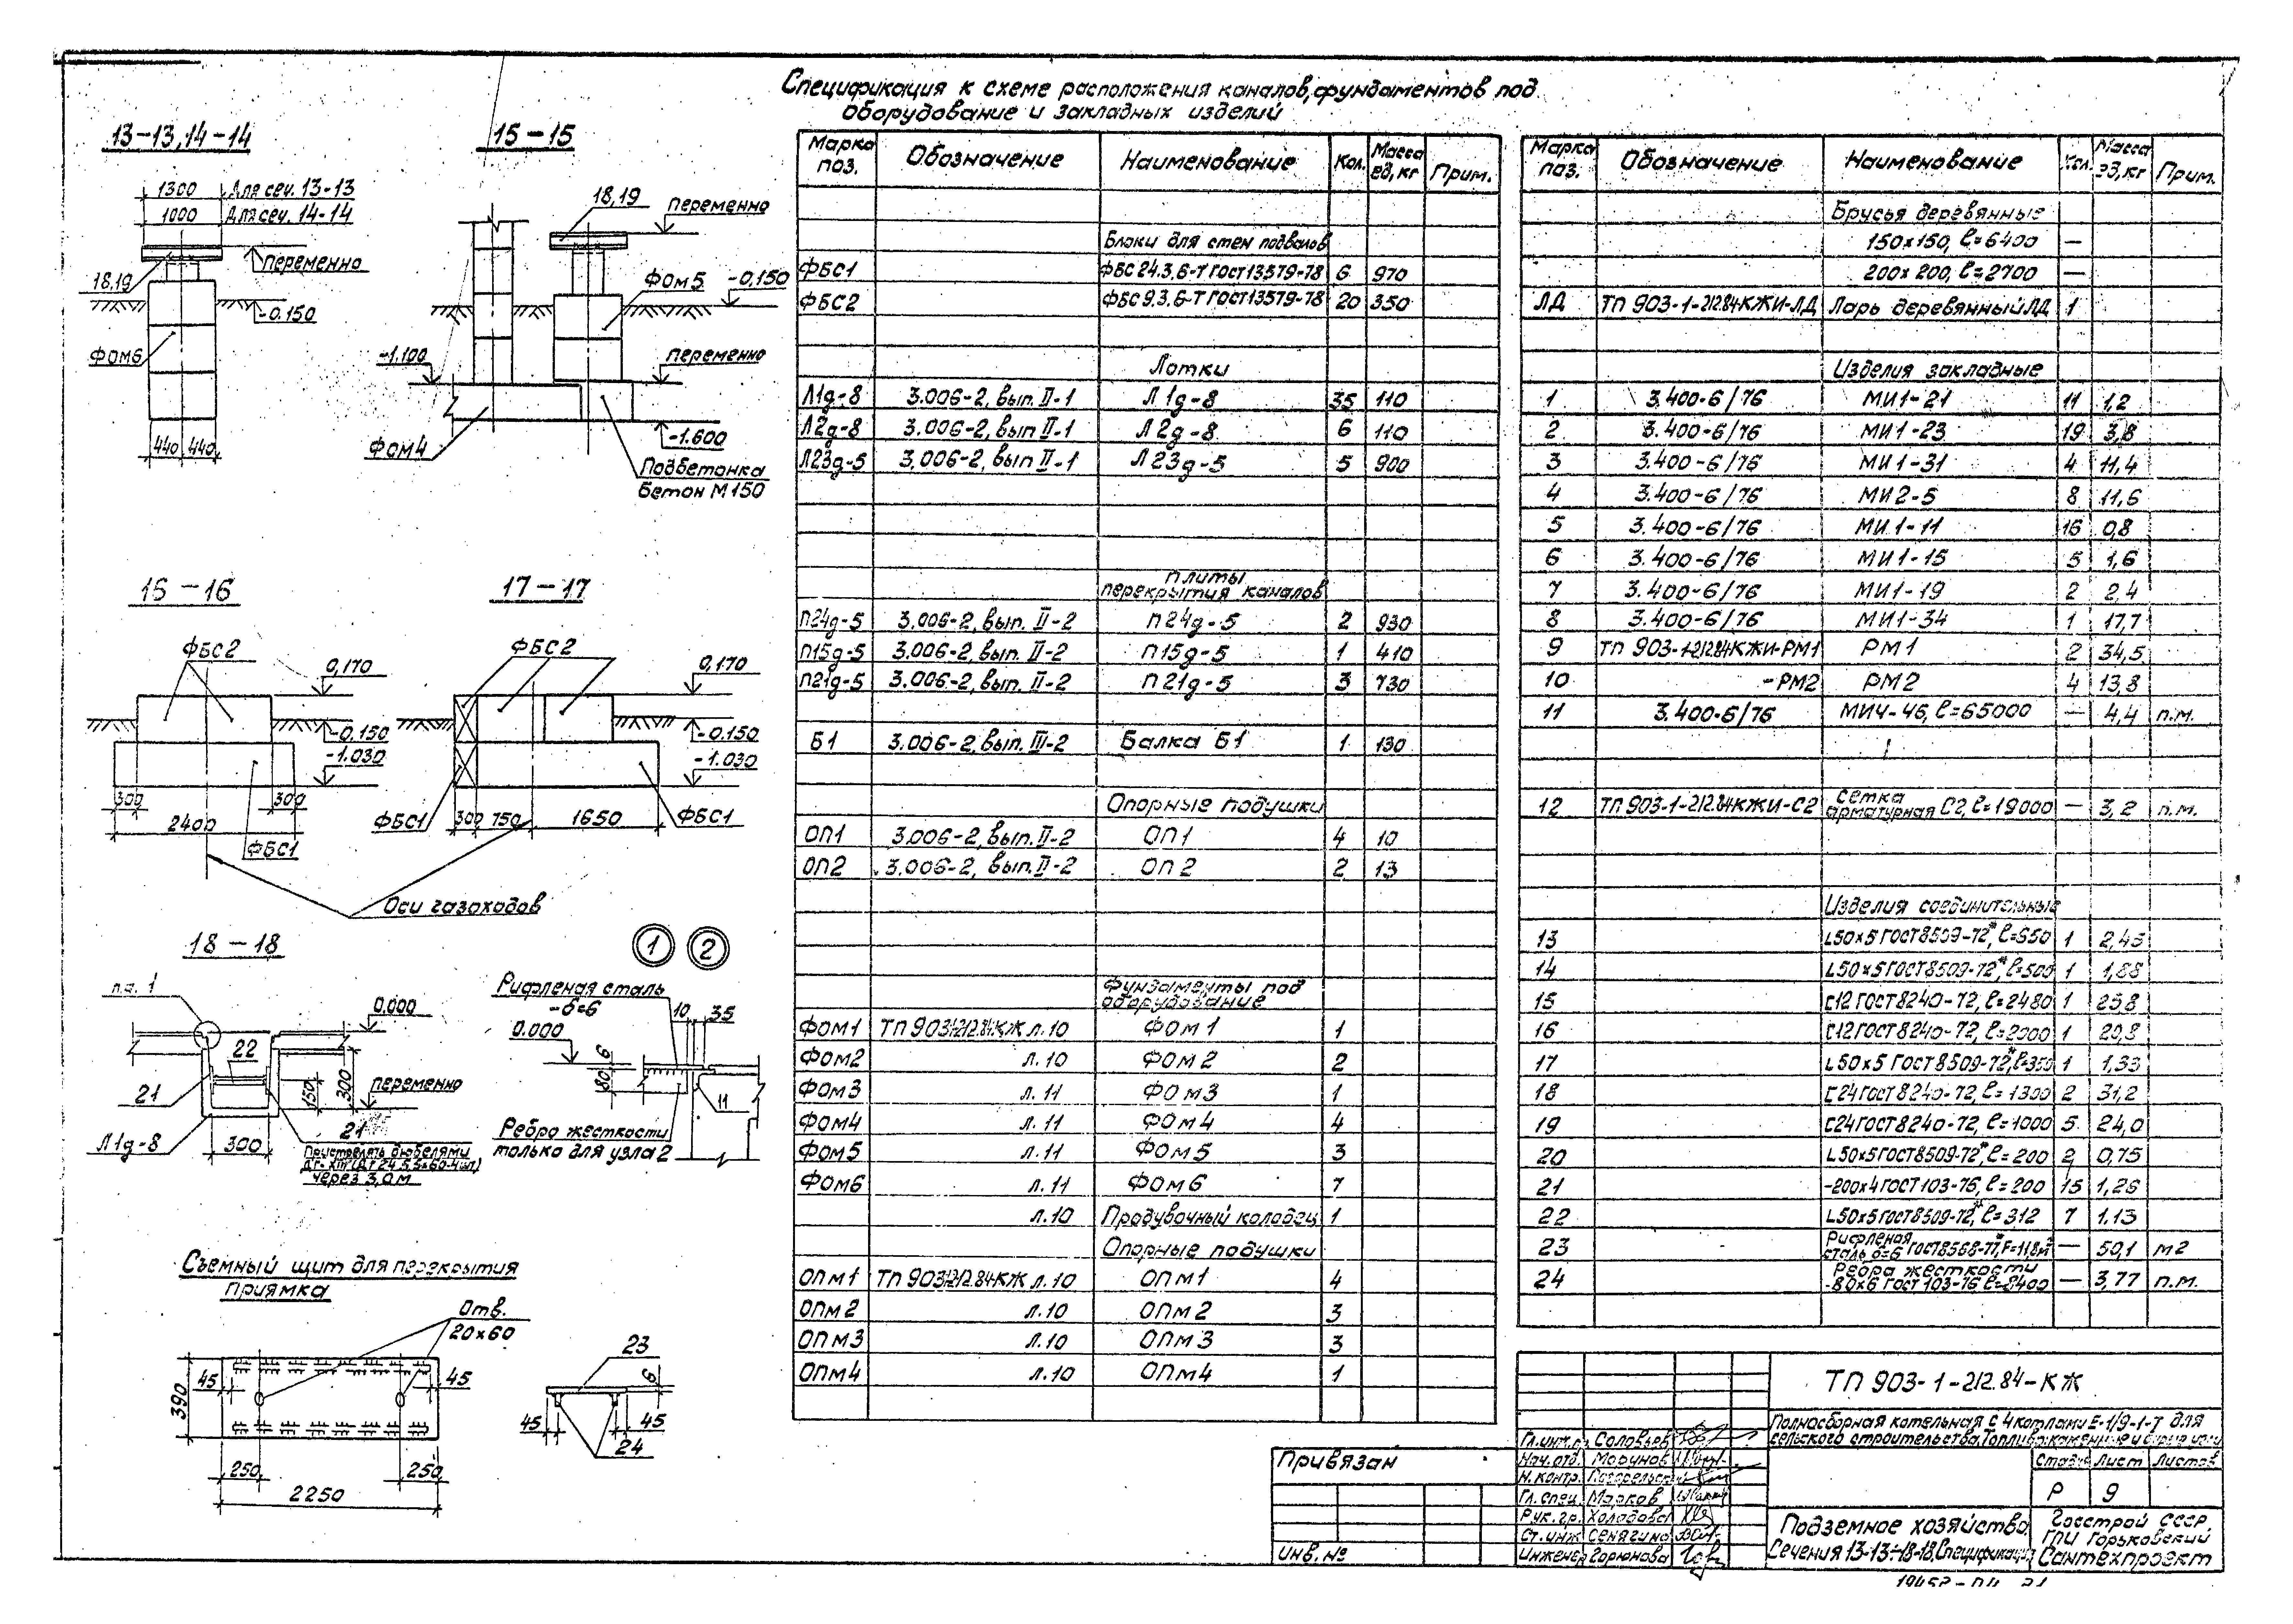 Спецификация к схеме расположения каналов, фундаментов под
оборудование и закладных изделий
13-13, 14-14
1300 Для сеч. 13-13
1000 Для сеч. 14-14
переменно
18,19
-0.150
Фом6
440 440
15-15
18,19
переменно
Фом5
-0.150
-1.100
переменно
-1.600
Фом4
Подбетонка
Бетон М150
16-16
ФБС2
0,170
-0.150
-1.030
300 300
2400
ФБС1
17-17
ФБС2
0,170
-0.150
-1.030
ФБС1
300 750 1650
ФБС1
Оси газоходов
18-18
0.000
22
21
150
300
переменно
21
Л1g-8
300
Пристрелять дюбелями
через 3,0м
1 2
Рифленая сталь
-δ=6
0.000
10 35
6
80
11
Ребро жесткости
только для узла 2
Съемный щит для перекрытия
приямка
Отв.
20х60
45 45
390
250 250
2250
23
6
45 45
24
Марка поз. Обозначение Наименование Кол. Масса ед,кг Прим.
Блоки для стен подвалов
ФБС1 ФБС 24.3.6-Т ГОСТ13579-78 6 970
ФБС2 ФБС 9.3.6-Т ГОСТ13579-78 20 350
Лотки
Л1g-8 3.006-2, вып. II-1 Л1g-8 35 110
Л2g-8 3.006-2, вып II-1 Л2g-8 6 110
Л23g-5 3.006-2, вып II-1 Л23g-5 5 900
Плиты
перекрытия каналов
П24g-5 3.006-2, вып. II-2 П24g-5 2 930
П15g-5 3.006-2, вып. II-2 П15g-5 1 410
П21g-5 3.006-2, вып. II-2 П21g-5 3 730
Б1 3.006-2, вып. III-2 Балка Б1 1 130
Опорные подушки
ОП1 3.006-2, вып. II-2 ОП1 4 10
ОП2 3.006-2, вып. II-2 ОП2 2 13
Фундаменты под
оборудование
Фом1 ТП 903-1-212.84-КЖ л.10 Фом1 1
Фом2 л.10 Фом2 2
Фом3 л.11 Фом3 1
Фом4 л.11 Фом4 4
Фом5 л.11 Фом5 3
Фом6 л.11 Фом6 7
л.10 Продувочный колодец 1
Опорные подушки
ОПм1 ТП 903-1-212.84-КЖ л.10 ОПм1 4
ОПм2 л.10 ОПм2 3
ОПм3 л.10 ОПм3 3
ОПм4 л.10 ОПм4 1
Марка поз. Обозначение Наименование Кол. Масса ед,кг Прим.
Брусья деревянные
150х150, ℓ=6400 —
200х200, ℓ=2700 —
ЛД ТП 903-1-212.84КЖИ-ЛД Ларь деревянный ЛД 1
Изделия закладные
1 3.400-6/76 МИ1-21 11 1,2
2 3.400-6/76 МИ1-23 19 3,8
3 3.400-6/76 МИ1-31 4 11,4
4 3.400-6/76 МИ2-5 8 11,6
5 3.400-6/76 МИ1-11 16 0,8
6 3.400-6/76 МИ1-15 5 1,6
7 3.400-6/76 МИ1-19 2 2,4
8 3.400-6/76 МИ1-34 1 17,7
9 ТП 903-1-212.84КЖИ-РМ1 РМ1 2 34,5
10 -РМ2 РМ2 4 13,8
11 3.400-6/76 МИ4-46, ℓ=65000 — 4,4 п.м.
12 ТП 903-1-212.84КЖИ-С2 Сетка арматурная С2, ℓ=19000 — 3,2 п.м.
Изделия соединительные
13 L50х5 ГОСТ8509-72*, ℓ=650 1 2,45
14 L50х5 ГОСТ8509-72*, ℓ=500 1 1,88
15 С12 ГОСТ8240-72, ℓ=2480 1 25,8
16 С12 ГОСТ8240-72, ℓ=2000 1 20,8
17 L50х5 ГОСТ8509-72*, ℓ=350 1 1,33
18 С24 ГОСТ8240-72, ℓ=1300 2 31,2
19 С24 ГОСТ8240-72, ℓ=1000 5 24,0
20 L50х5 ГОСТ8509-72*, ℓ=200 2 0,75
21 -200х4 ГОСТ103-76, ℓ=200 15 1,26
22 L50х5 ГОСТ8509-72*, ℓ=312 7 1.13
23 Рифленая сталь δ=6 ГОСТ8568-77*, F=11,8м² — 50,1 м2
24 Ребра жесткости -80х6 ГОСТ 103-76 ℓ=8400 — 3,77 п.м.
Привязан
Инв. №
ТП 903-1-212.84-КЖ
Полносборная котельная с 4 котлами Е-1/9-1-Т для
сельского строительства. Топливо
Гл.инж.п. Соловьев
Нач.отд.
Н.контр.
Гл.спец. Марков
Рук.гр. Холодова
Ст.инж Сенягина
Инженер Горюнова
Стадия Лист Листов
Р 9
Подземное хозяйство.
Сечения 13-13÷18-18, Спецификация
Госстрой СССР
ГПИ Горьковский
Сантехпроект